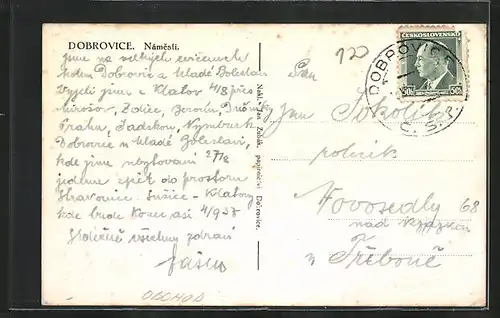 DOBROVICE. Náměstí.
jsme na velkých cvičeních
kolem Dobrovic a Mladé Boleslav
Vyjeli jsme z Klatov 4/8 přes
Mirošov, Zdice, Beroun,
Prahu, Sadskou, Nymburk
Dobrovice u Mladé Boleslavi,
kde jsme ubytováni 27/8
jedeme zpět do prostoru
Strakonice, Sušice - Klatovy
kde bude konec asi 4/9 37
Srdečně všechny zdraví
Jašek
OBCHOD
Nakl. Jan Zábák, papírnictví Dobrovice.
120
ČESKOSLOVENSKO
50h 50h
DOBROVICE
Č. S. R.
Pan
Jan Sokolík
rolník
Novosedly 68
nad Nežárkou
u Třeboně